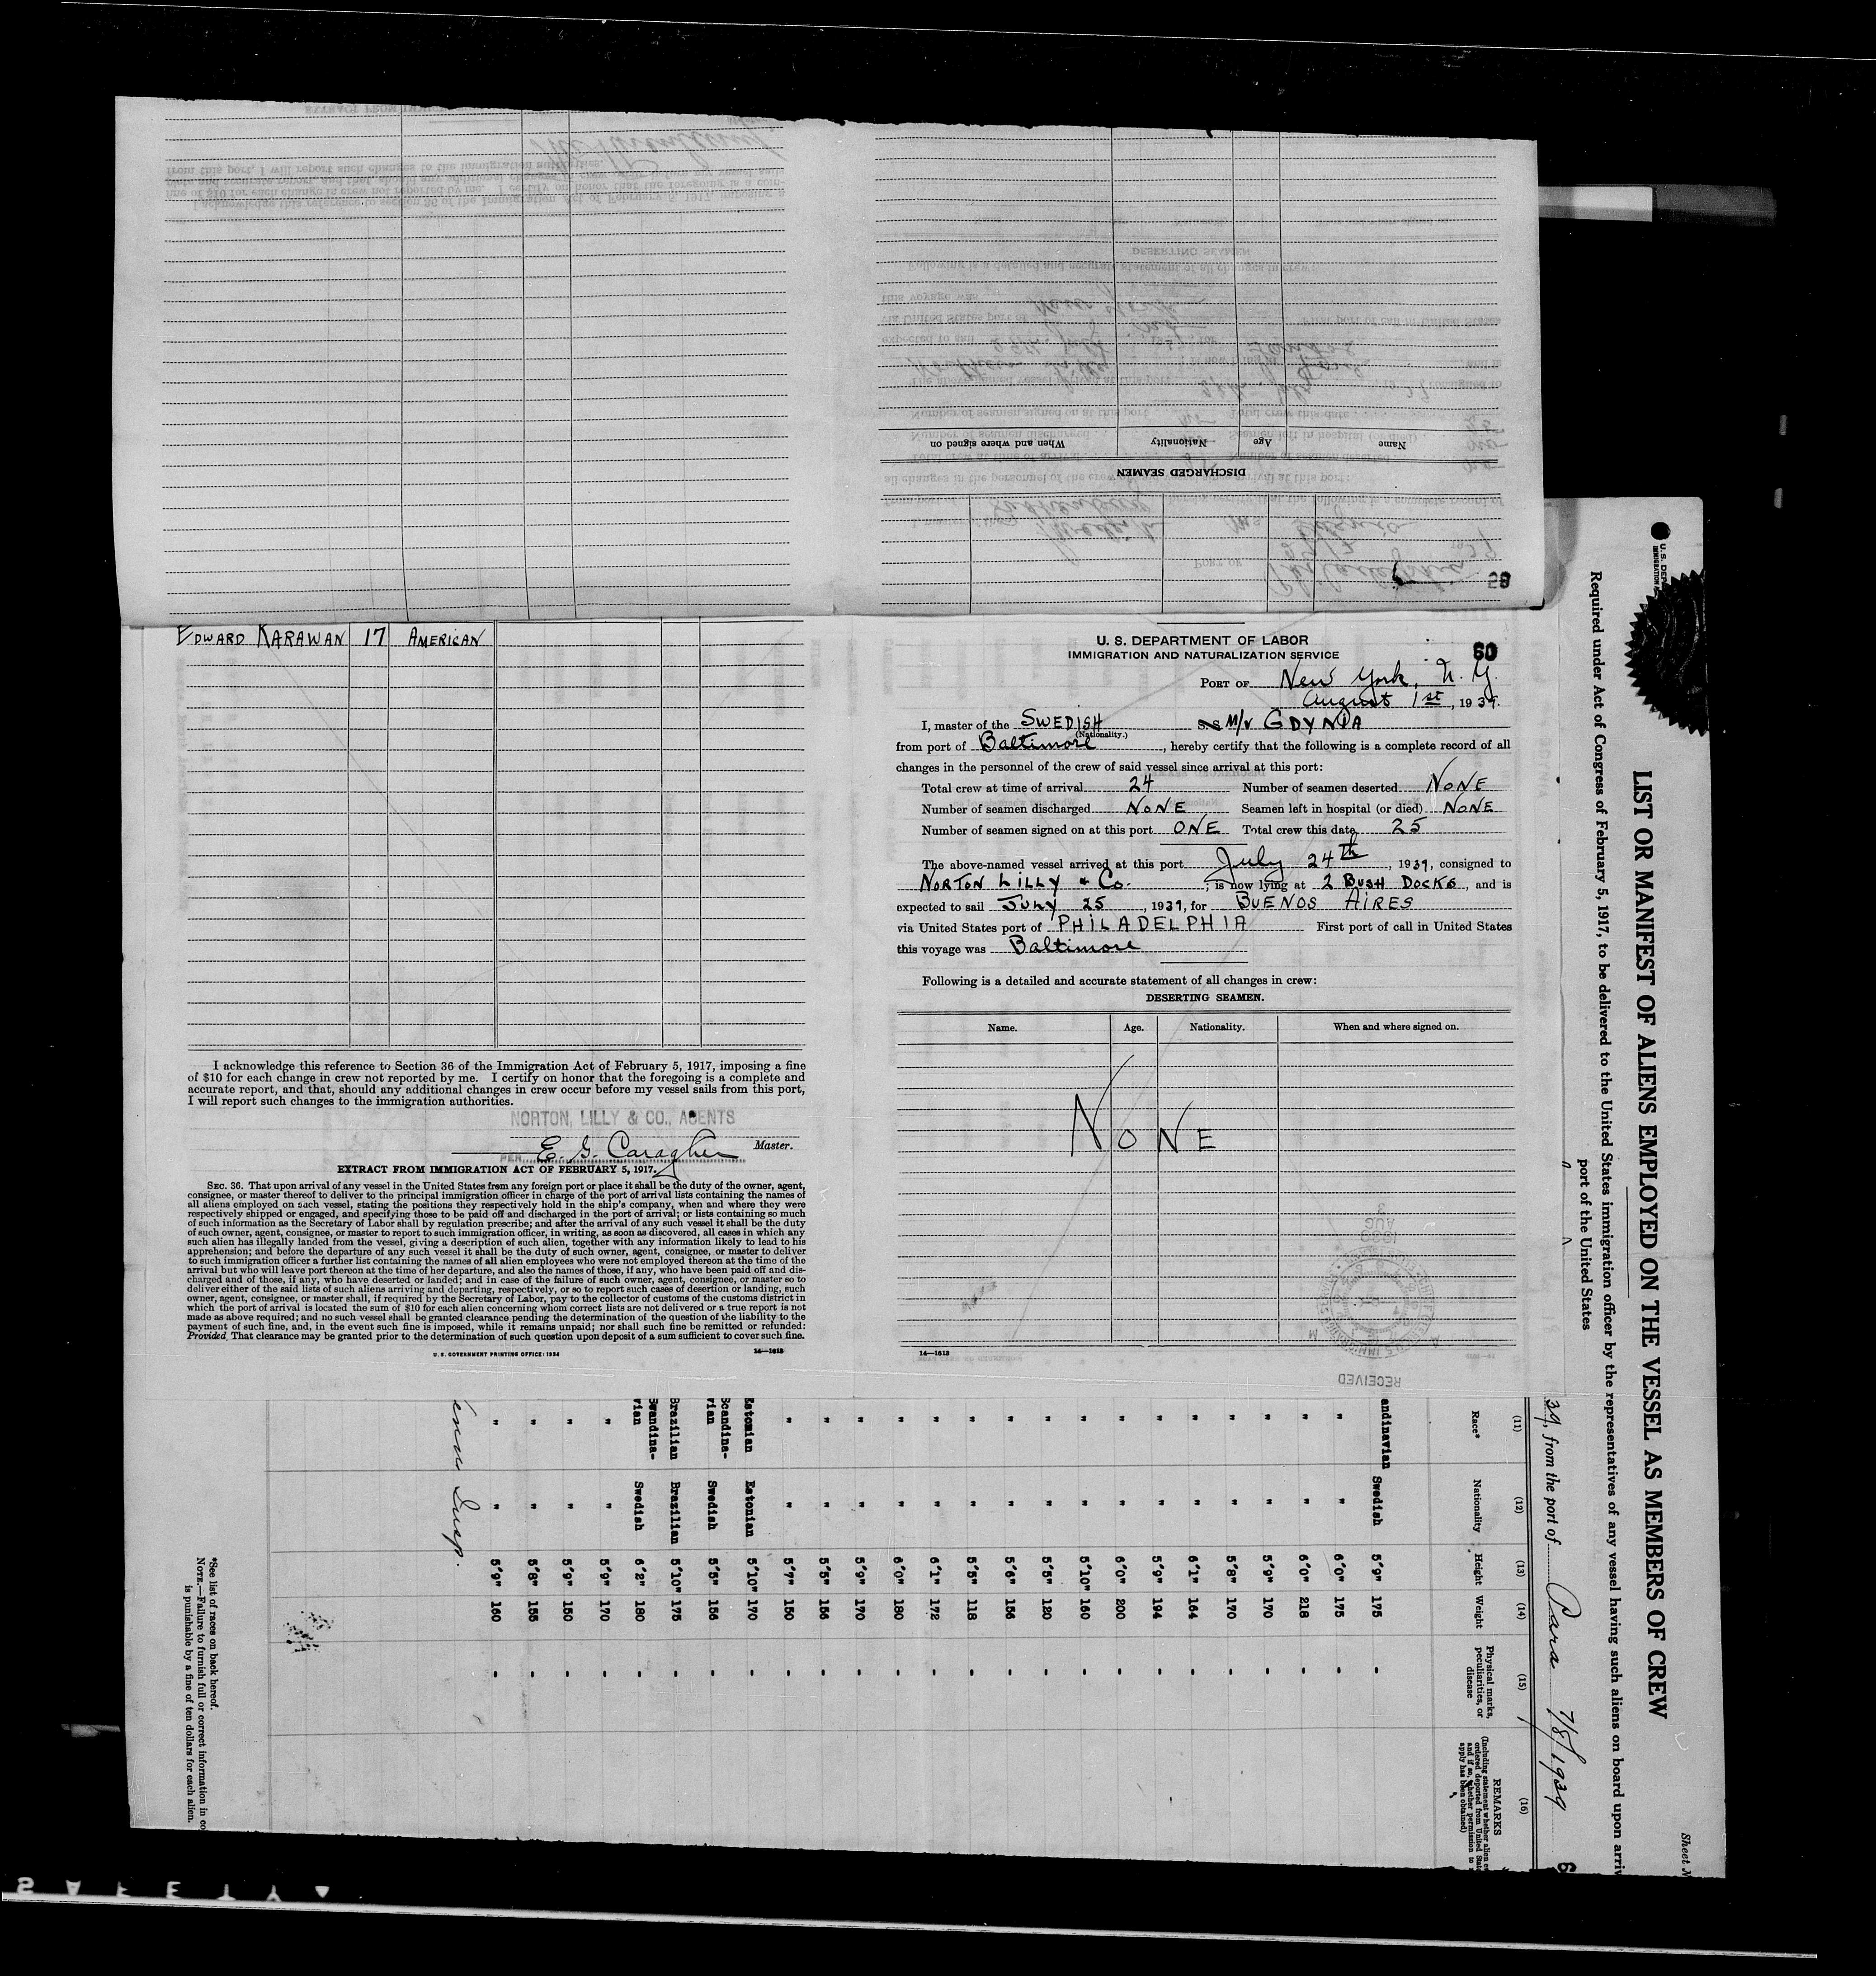 When and where signed on Nationality Age Name
DISCHARGED SEAMEN
28
EDWARD KARAWAN 17 AMERICAN
I acknowledge this reference to Section 36 of the Immigration Act of February 5, 1917, imposing a fine
of $10 for each change in crew not reported by me. I certify on honor that the foregoing is a complete and
accurate report, and that, should any additional changes in crew occur before my vessel sails from this port,
I will report such changes to the immigration authorities.
NORTON, LILLY & CO., AGENTS
PER E. G. Caragher Master.
EXTRACT FROM IMMIGRATION ACT OF FEBRUARY 5, 1917.
SEC. 36. That upon arrival of any vessel in the United States from any foreign port or place it shall be the duty of the owner, agent,
consignee, or master thereof to deliver to the principal immigration officer in charge of the port of arrival lists containing the names of
all aliens employed on such vessel, stating the positions they respectively hold in the ship's company, when and where they were
respectively shipped or engaged, and specifying those to be paid off and discharged in the port of arrival; or lists containing so much
of such information as the Secretary of Labor shall by regulation prescribe; and after the arrival of any such vessel it shall be the duty
of such owner, agent, consignee, or master to report to such immigration officer, in writing, as soon as discovered, all cases in which any
such alien has illegally landed from the vessel, giving a description of such alien, together with any information likely to lead to his
apprehension; and before the departure of any such vessel it shall be the duty of such owner, agent, consignee, or master to deliver
to such immigration officer a further list containing the names of all alien employees who were not employed thereon at the time of the
arrival but who will leave port thereon at the time of her departure, and also the names of those, if any, who have been paid off and dis-
charged and of those, if any, who have deserted or landed; and in case of the failure of such owner, agent, consignee, or master so to
deliver either of the said lists of such aliens arriving and departing, respectively, or so to report such cases of desertion or landing, such
owner, agent, consignee, or master shall, if required by the Secretary of Labor, pay to the collector of customs of the customs district in
which the port of arrival is located the sum of $10 for each alien concerning whom correct lists are not delivered or a true report is not
made as above required; and no such vessel shall be granted clearance pending the determination of the question of the liability to the
payment of such fine, and, in the event such fine is imposed, while it remains unpaid; nor shall such fine be remitted or refunded:
Provided, That clearance may be granted prior to the determination of such question upon deposit of a sum sufficient to cover such fine.
U. S. GOVERNMENT PRINTING OFFICE: 1934 14—1613
U. S. DEPARTMENT OF LABOR
IMMIGRATION AND NATURALIZATION SERVICE
60
PORT OF New York, N. Y.
August 1st, 1939.
I, master of the SWEDISH S.S. M/V GDYNIA
(Nationality.)
from port of Baltimore, hereby certify that the following is a complete record of all
changes in the personnel of the crew of said vessel since arrival at this port:
Total crew at time of arrival 24 Number of seamen deserted NONE
Number of seamen discharged NONE Seamen left in hospital (or died) NONE
Number of seamen signed on at this port ONE Total crew this date 25
The above-named vessel arrived at this port July 24th, 1939, consigned to
NORTON LILLY & Co.; is now lying at 2 BUSH DOCKS, and is
expected to sail JULY 25, 1939, for BUENOS AIRES
via United States port of PHILADELPHIA First port of call in United States
this voyage was Baltimore
Following is a detailed and accurate statement of all changes in crew:
DESERTING SEAMEN.
Name. Age. Nationality. When and where signed on.
NONE
14—1613
RECEIVED
LIST OR MANIFEST OF ALIENS EMPLOYED ON THE VESSEL AS MEMBERS OF CREW
Required under Act of Congress of February 5, 1917, to be delivered to the United States immigration officer by the representatives of any vessel having such aliens on board upon arriv
port of the United States
Sheet N
39, from the port of Para 7/8/1939
(11) (12) (13) (14) (15) (16)
Race* Nationality Height Weight Physical marks, peculiarities, or disease REMARKS
andinavian Swedish 5'9" 175 -
" " 6'0" 175 -
" " 6'0" 218 -
" " 5'9" 170 -
" " 5'8" 170 -
" " 6'1" 164 -
" " 5'9" 194 -
" " 6'0" 200 -
" " 5'10" 160 -
" " 5'5" 120 -
" " 5'6" 156 -
" " 5'5" 118 -
" " 6'1" 172 -
" " 6'0" 180 -
" " 5'9" 170 -
" " 5'5" 156 -
" " 5'7" 150 -
Estonian Estonian 5'10" 170 -
Scandina-
vian Swedish 5'5" 156 -
Brazilian Brazilian 5'10" 175 -
Swandina-
vian Swedish 6'2" 180 -
" " 5'9" 170 -
" " 5'9" 150 -
" " 5'8" 155 -
" " 5'9" 160 -
Insp.
*See list of races on back hereof.
NOTE.—Failure to furnish full or correct information in co
is punishable by a fine of ten dollars for each alien.
SAFETY